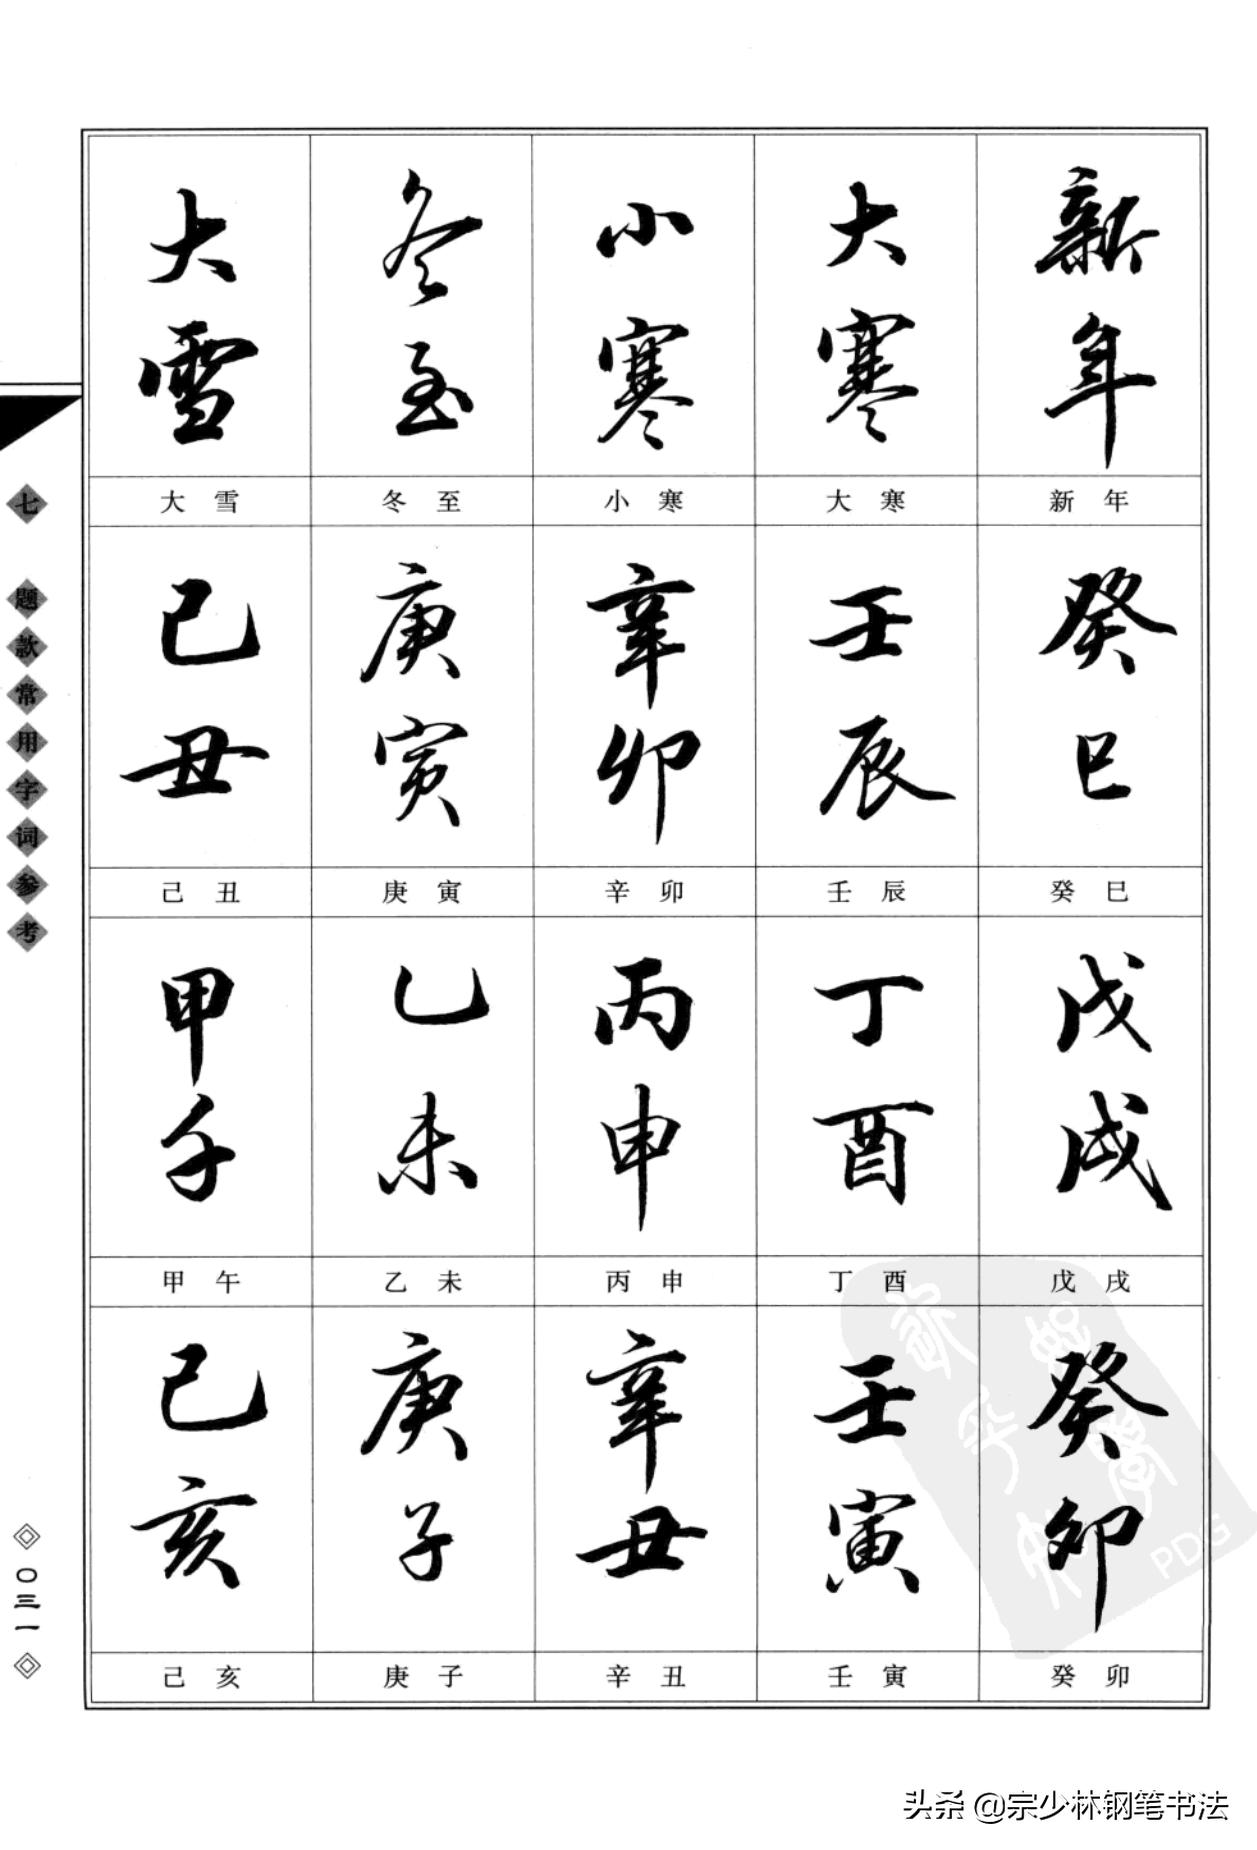 大雪 冬至 小寒 大寒 新年
大雪 冬至 小寒 大寒 新年
己丑 庚寅 辛卯 壬辰 癸巳
己丑 庚寅 辛卯 壬辰 癸巳
甲午 乙未 丙申 丁酉 戊戌
甲午 乙未 丙申 丁酉 戊戌
己亥 庚子 辛丑 壬寅 癸卯
己亥 庚子 辛丑 壬寅 癸卯
七 题款常用字词参考
〇三一
PDG
头条 @宗少林钢笔书法